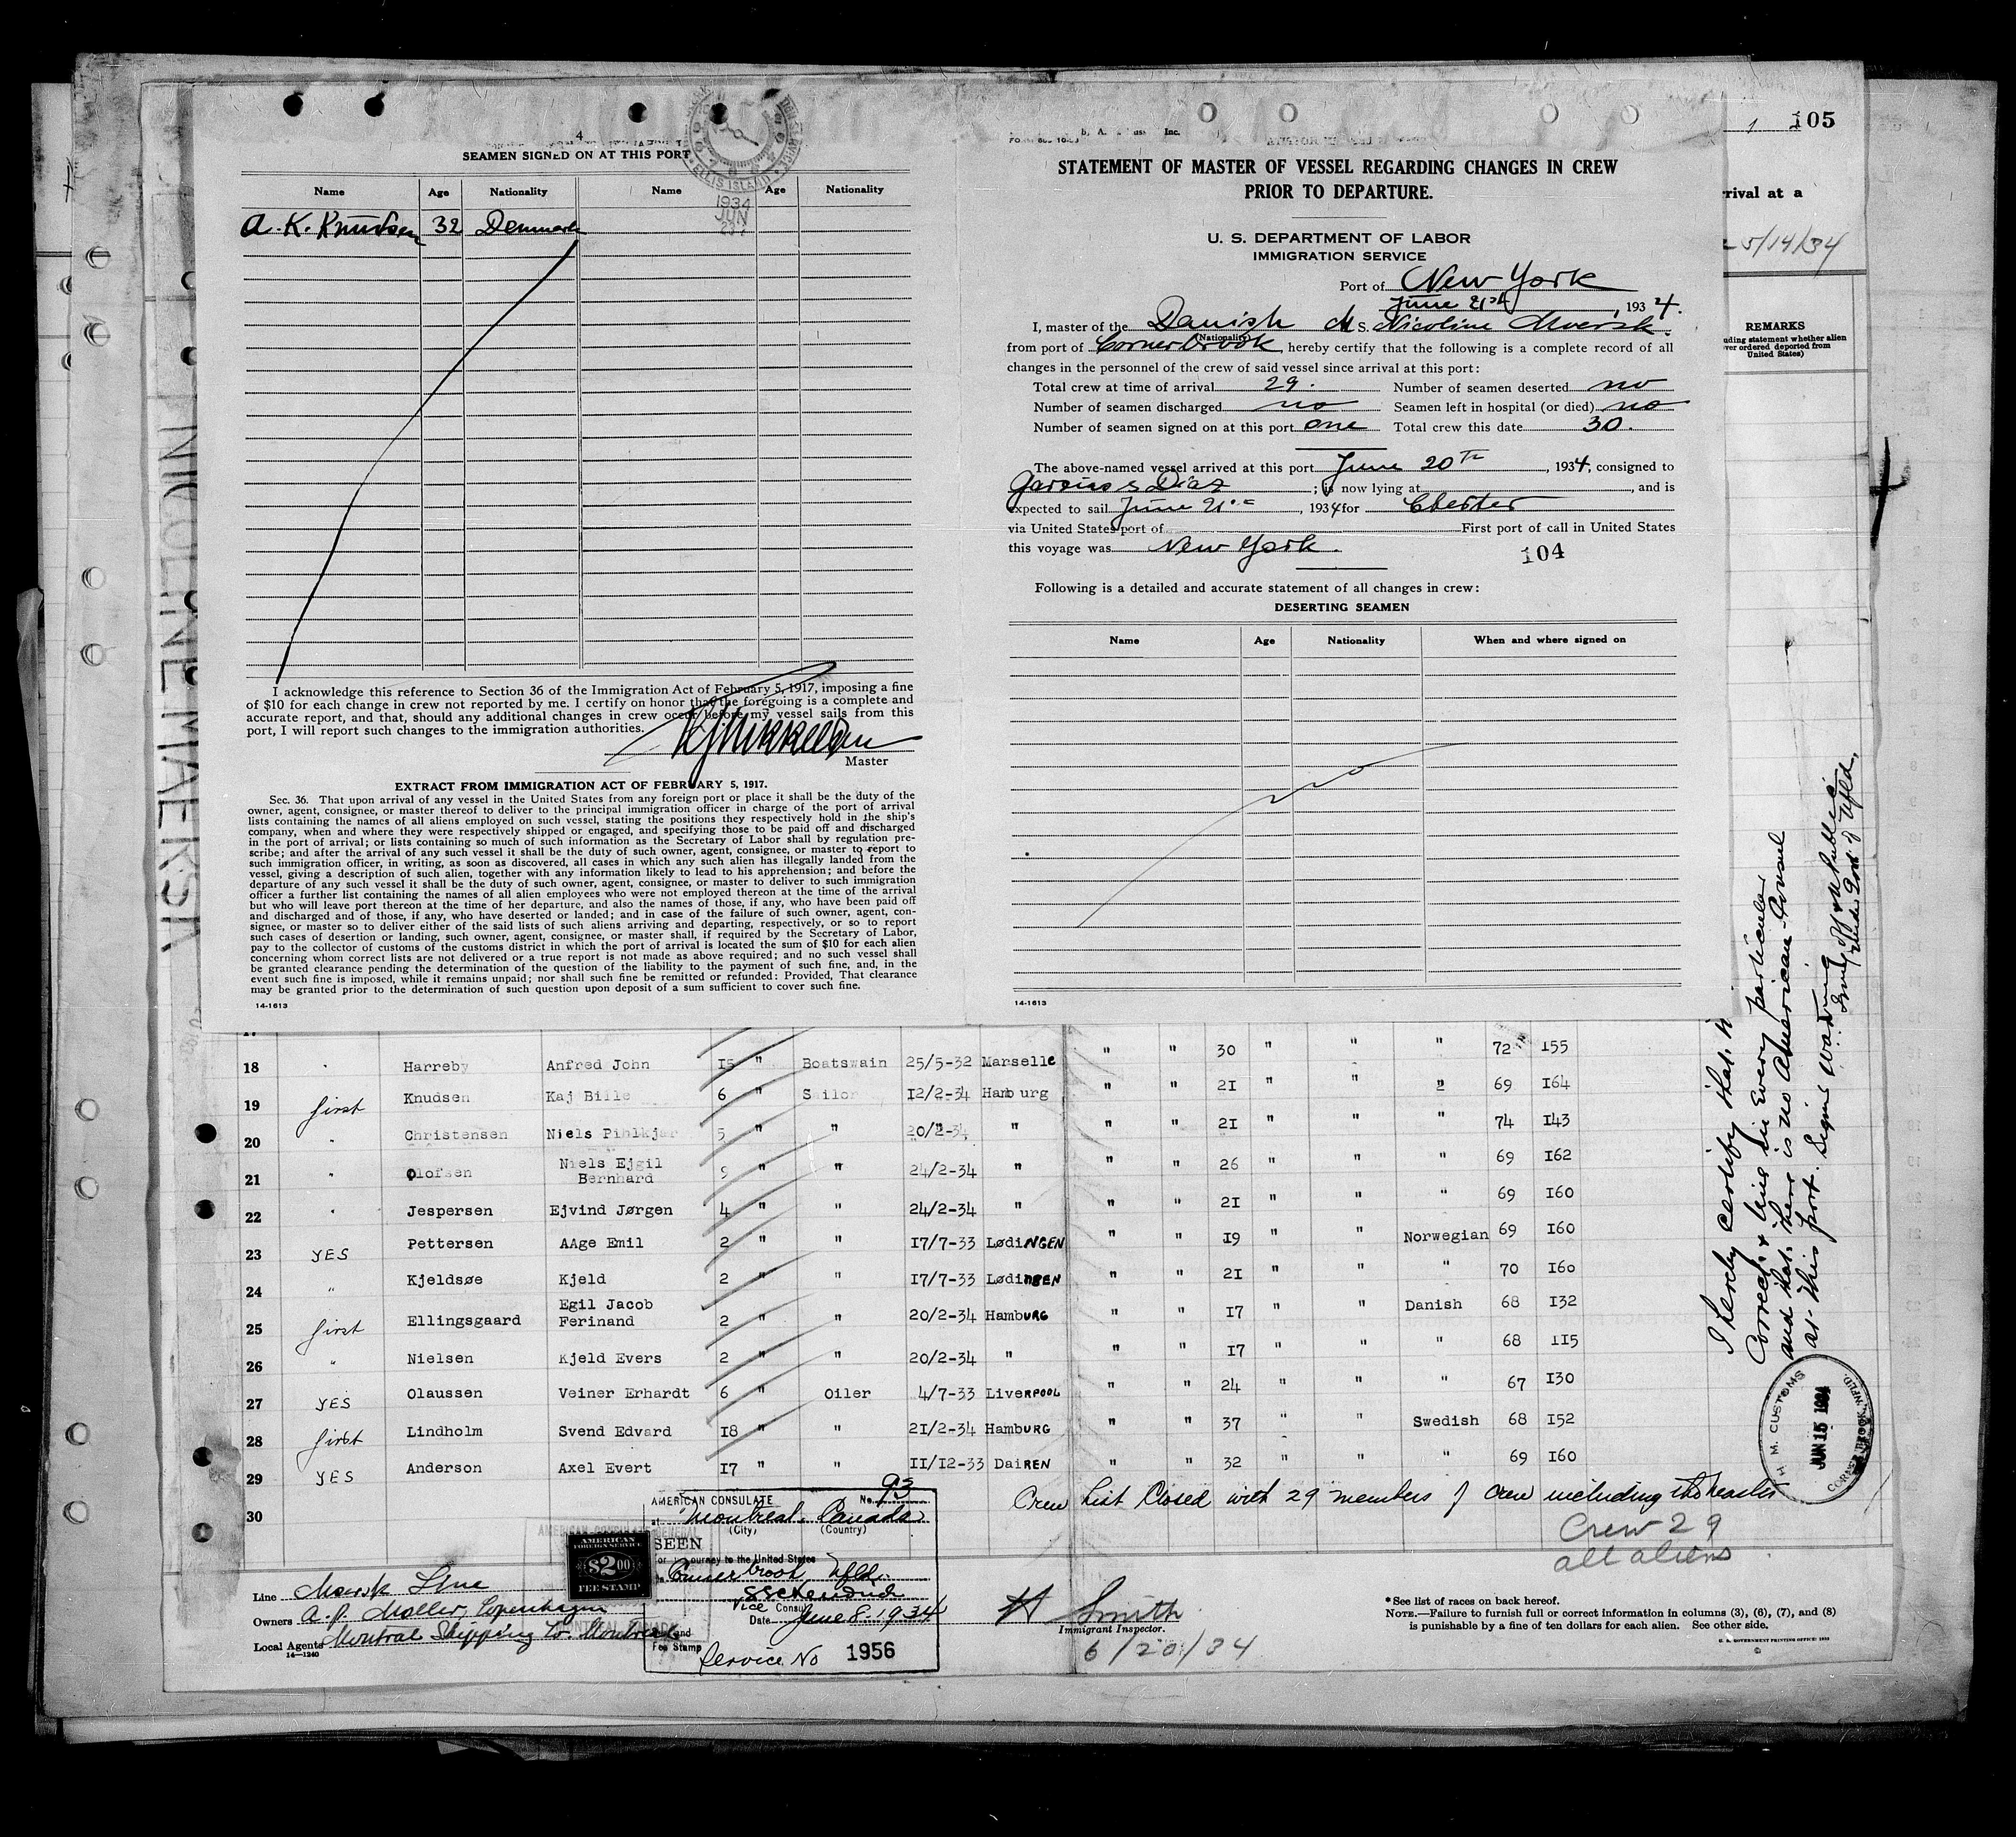 4
SEAMEN SIGNED ON AT THIS PORT
Name Age Nationality Name Age Nationality
A. K. Knudsen 32 Denmark
ELLIS ISLAND
1934
JUN
I acknowledge this reference to Section 36 of the Immigration Act of February 5, 1917, imposing a fine
of $10 for each change in crew not reported by me. I certify on honor that the foregoing is a complete and
accurate report, and that, should any additional changes in crew occur before my vessel sails from this
port, I will report such changes to the immigration authorities.
Master
EXTRACT FROM IMMIGRATION ACT OF FEBRUARY 5, 1917.
Sec. 36. That upon arrival of any vessel in the United States from any foreign port or place it shall be the duty of the
owner, agent, consignee, or master thereof to deliver to the principal immigration officer in charge of the port of arrival
lists containing the names of all aliens employed on such vessel, stating the positions they respectively hold in the ship's
company, when and where they were respectively shipped or engaged, and specifying those to be paid off and discharged
in the port of arrival; or lists containing so much of such information as the Secretary of Labor shall by regulation pre-
scribe; and after the arrival of any such vessel it shall be the duty of such owner, agent, consignee, or master to report to
such immigration officer, in writing, as soon as discovered, all cases in which any such alien has illegally landed from the
vessel, giving a description of such alien, together with any information likely to lead to his apprehension; and before the
departure of any such vessel it shall be the duty of such owner, agent, consignee, or master to deliver to such immigration
officer a further list containing the names of all alien employees who were not employed thereon at the time of the arrival
but who will leave port thereon at the time of her departure, and also the names of those, if any, who have been paid off
and discharged and of those, if any, who have deserted or landed; and in case of the failure of such owner, agent, con-
signee, or master so to deliver either of the said lists of such aliens arriving and departing, respectively, or so to report
such cases of desertion or landing, such owner, agent, consignee, or master shall, if required by the Secretary of Labor,
pay to the collector of customs of the customs district in which the port of arrival is located the sum of $10 for each alien
concerning whom correct lists are not delivered or a true report is not made as above required; and no such vessel shall
be granted clearance pending the determination of the question of the liability to the payment of such fine, and, in the
event such fine is imposed, while it remains unpaid; nor shall such fine be remitted or refunded: Provided, That clearance
may be granted prior to the determination of such question upon deposit of a sum sufficient to cover such fine.
14-1613
STATEMENT OF MASTER OF VESSEL REGARDING CHANGES IN CREW
PRIOR TO DEPARTURE.
U. S. DEPARTMENT OF LABOR
IMMIGRATION SERVICE
Port of New York
June 21st, 1934.
I, master of the Danish M S. Nicoline Maersk.
(Nationality)
from port of Cornerbrook, hereby certify that the following is a complete record of all
changes in the personnel of the crew of said vessel since arrival at this port:
Total crew at time of arrival 29. Number of seamen deserted no
Number of seamen discharged no Seamen left in hospital (or died) no
Number of seamen signed on at this port one Total crew this date 30.
The above-named vessel arrived at this port June 20th, 1934, consigned to
Garcias & Diaz; is now lying at , and is
expected to sail June 21st, 1934 for Chester
via United States port of First port of call in United States
this voyage was New York.
104
Following is a detailed and accurate statement of all changes in crew:
DESERTING SEAMEN
Name Age Nationality When and where signed on
no
14-1613
1 105
rrival at a
5/14/34
REMARKS
uding statement whether alien
ver ordered deported from
United States)
NICOLINE MAERSK
18 " Harreby Anfred John 15 " Boatswain 25/5-32 Marselle " " 30 " " " 72 155
19 first Knudsen Kaj Bille 6 " Sailor 12/2-34 Hamburg " " 21 " " " 69 164
20 " Christensen Niels Pihlkjar 5 " " 20/2-34 " " " 21 " " " 74 143
21 " Olofsen Niels Ejgil Bernhard 9 " " 24/2-34 " " " 26 " " " 69 162
22 " Jespersen Ejvind Jørgen 4 " " 24/2-34 " " " 21 " " " 69 160
23 YES Pettersen AAge Emil 2 " " 17/7-33 LødiNGEN " " 19 " " Norwegian 69 160
24 " Kjeldsøe Kjeld 2 " " 17/7-33 LødiNGEN " " 21 " " " 70 160
25 first Ellingsgaard Egil Jacob Ferinand 2 " " 20/2-34 HambURG " " 17 " " Danish 68 132
26 " Nielsen Kjeld Evers 2 " " 20/2-34 " " " 17 " " " 68 115
27 YES Olaussen Veiner Erhardt 6 " Oiler 4/7-33 LivERPOOL " " 24 " " " 67 130
28 first Lindholm Svend Edvard 18 " " 21/2-34 HambURG " " 37 " " Swedish 68 152
29 YES Anderson Axel Evert 17 " " 11/12-33 DaiREN " " 32 " " " 69 160
30
Crew List Closed with 29 members of crew including the master
Crew 29
all aliens
AMERICAN CONSULATE No. 93
at Montreal, Canada
(City) (Country)
SEEN
For journey to the United States
Cornerbrook Nfld.
Vice Consul
Date June 8-1934
Fee Stamp
Service No 1956
AMERICAN
FOREIGN SERVICE
$2.00
FEE STAMP
Line Maersk Line
Owners A. P. Moller, Copenhagen
Local Agents Montreal Shipping Co. Montreal
14-1240
H Smith
Immigrant Inspector.
6/20/34
*See list of races on back hereof.
NOTE.—Failure to furnish full or correct information in columns (3), (6), (7), and (8)
is punishable by a fine of ten dollars for each alien. See other side.
U. S. GOVERNMENT PRINTING OFFICE: 1933
I hereby certify that
correct & true in every particular
and that there is no American Consul
at this port. Signed
H. M. CUSTOMS
JUN 15 1934
CORNER BROOK, NFLD.